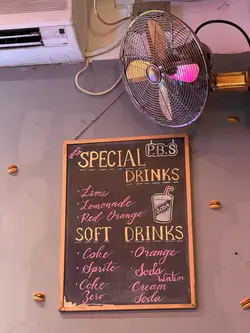 SPECIAL P.B.S
DRINKS
· Lime
· Lemonade
· Red Orange
SODA
SOFT DRINKS
· Coke · Orange
· Sprite · Soda Water
· Coke Zero · Cream Soda